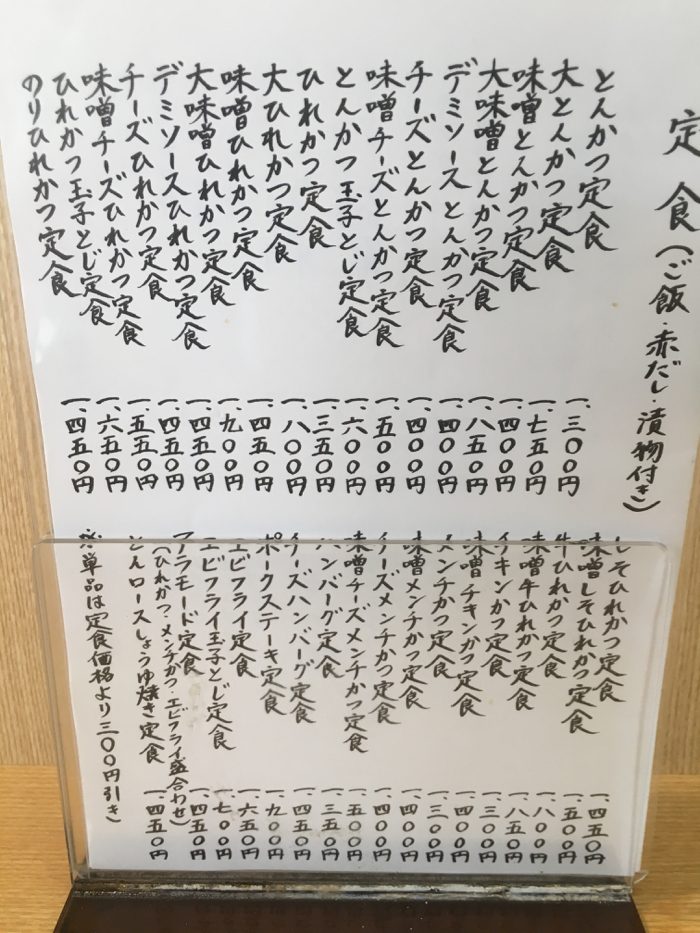 定食(ご飯・赤だし・漬物付き)
とんかつ定食 一、三〇〇円
大とんかつ定食 一、七五〇円
味噌とんかつ定食 一、四〇〇円
大味噌とんかつ定食 一、八五〇円
デミソースとんかつ定食 一、四〇〇円
チーズとんかつ定食 一、四〇〇円
味噌チーズとんかつ定食 一、五〇〇円
とんかつ玉子とじ定食 一、六〇〇円
ひれかつ定食 一、三五〇円
大ひれかつ定食 一、八〇〇円
味噌ひれかつ定食 一、四五〇円
大味噌ひれかつ定食 一、九〇〇円
デミソースひれかつ定食 一、四五〇円
チーズひれかつ定食 一、四五〇円
味噌チーズひれかつ定食 一、五五〇円
ひれかつ玉子とじ定食 一、六五〇円
のりひれかつ定食 一、四五〇円
しそひれかつ定食 一、四五〇円
味噌しそひれかつ定食 一、五〇〇円
牛ひれかつ定食 一、八〇〇円
味噌牛ひれかつ定食 一、八五〇円
チキンかつ定食 一、三〇〇円
味噌チキンかつ定食 一、四〇〇円
メンチかつ定食 一、三〇〇円
味噌メンチかつ定食 一、四〇〇円
チーズメンチかつ定食 一、四〇〇円
味噌チーズメンチかつ定食 一、五〇〇円
ハンバーグ定食 一、三五〇円
チーズハンバーグ定食 一、四五〇円
ポークステーキ定食 一、九〇〇円
エビフライ定食 一、六五〇円
エビフライ玉子とじ定食 一、七〇〇円
アラモード定食 一、四五〇円
(ひれかつ・メンチかつ・エビフライ盛合わせ)
とんロースしょうゆ焼き定食 一、四五〇円
※単品は定食価格より三〇〇円引き